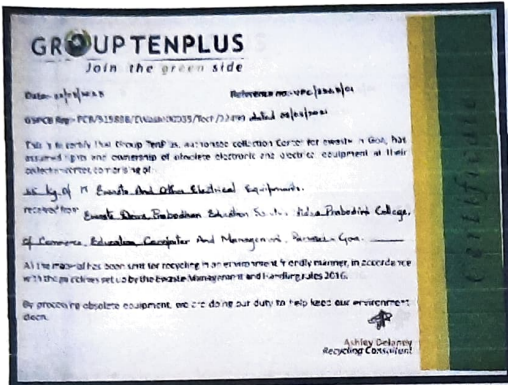 GROUP TENPLUS
Join the green side
Date:
Reference no:
GSPCB Reg:- dated
This is to certify that Group TenPlus, authorised collection Center for ewaste in Goa, has
assumed rights and ownership of obsolete electronic and electrical equipment at their
collection center, comprising of
kg of IT Ewaste And Other Electrical Equipments.
received from Prabodhan Education Vidya Prabodini College,
of Commerce, Education, Computer And Management, Goa.
All the material has been sent for recycling in an environment friendly manner, in accordance
with the guidelines set up by the Ewaste Management and Handling rules 2016.
By processing obsolete equipment, we are doing our duty to help keep our environment
clean.
Ashley Delaney
Recycling Consultant
certificate